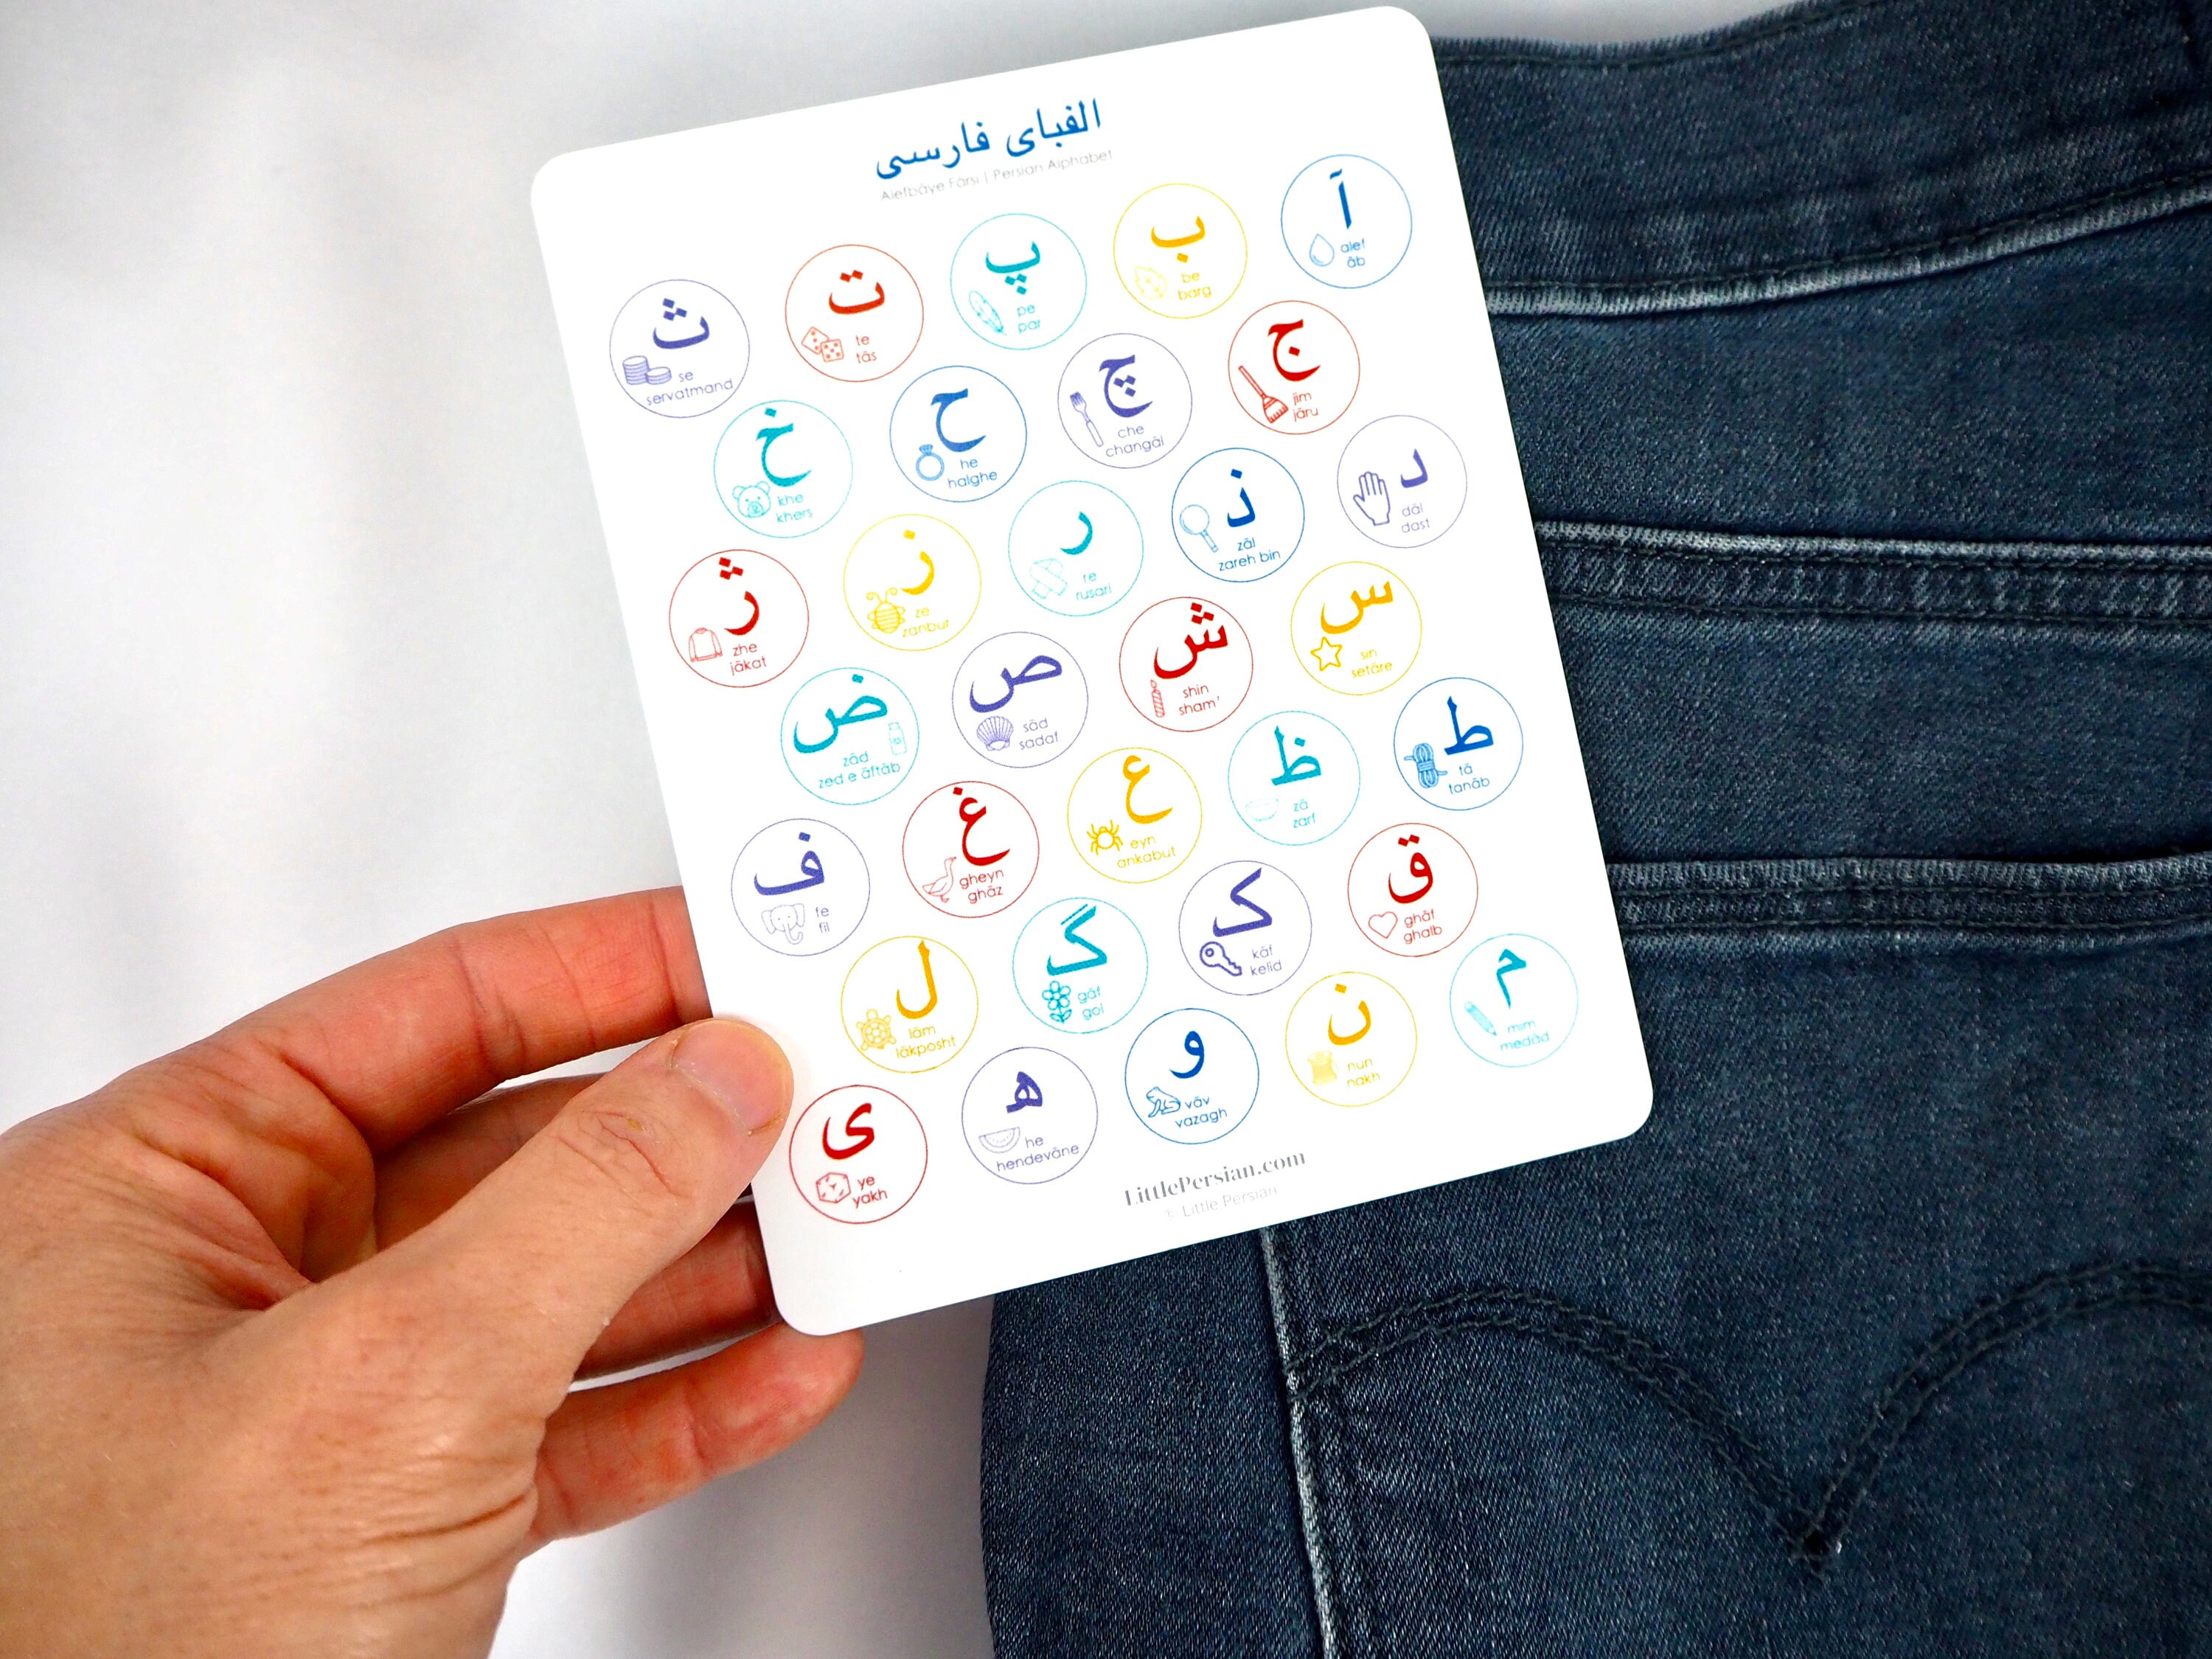 الفبای فارسی
Alefbāye Fārsi | Persian Alphabet
آ
alef
āb
ب
be
barg
پ
pe
par
ت
te
tās
ث
se
servatmand
ج
jim
jāru
چ
che
changāl
ح
he
halghe
خ
khe
khers
د
dāl
dast
ذ
zāl
zareh bin
ر
re
rusari
ز
ze
zanbur
ژ
zhe
jākat
س
sin
setāre
ش
shin
sham'
ص
sād
sadaf
ض
zād
zed e āftāb
ط
tā
tanāb
ظ
zā
zarf
ع
eyn
ankabut
غ
gheyn
ghāz
ف
fe
fil
ق
ghāf
ghalb
ک
kāf
kelid
گ
gāf
gol
ل
lām
lākposht
م
mim
medād
ن
nun
nakh
و
vāv
vazagh
ه
he
hendevāne
ی
ye
yakh
LittlePersian.com
© Little Persian